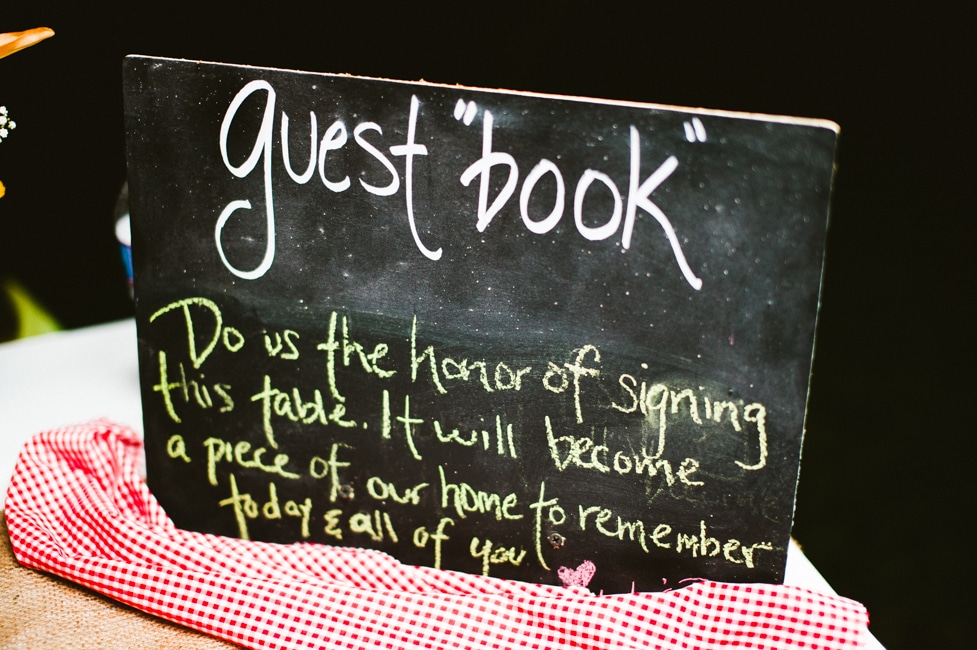 guest "book"
Do us the honor of signing
this table. It will become
a piece of our home to remember
today & all of you